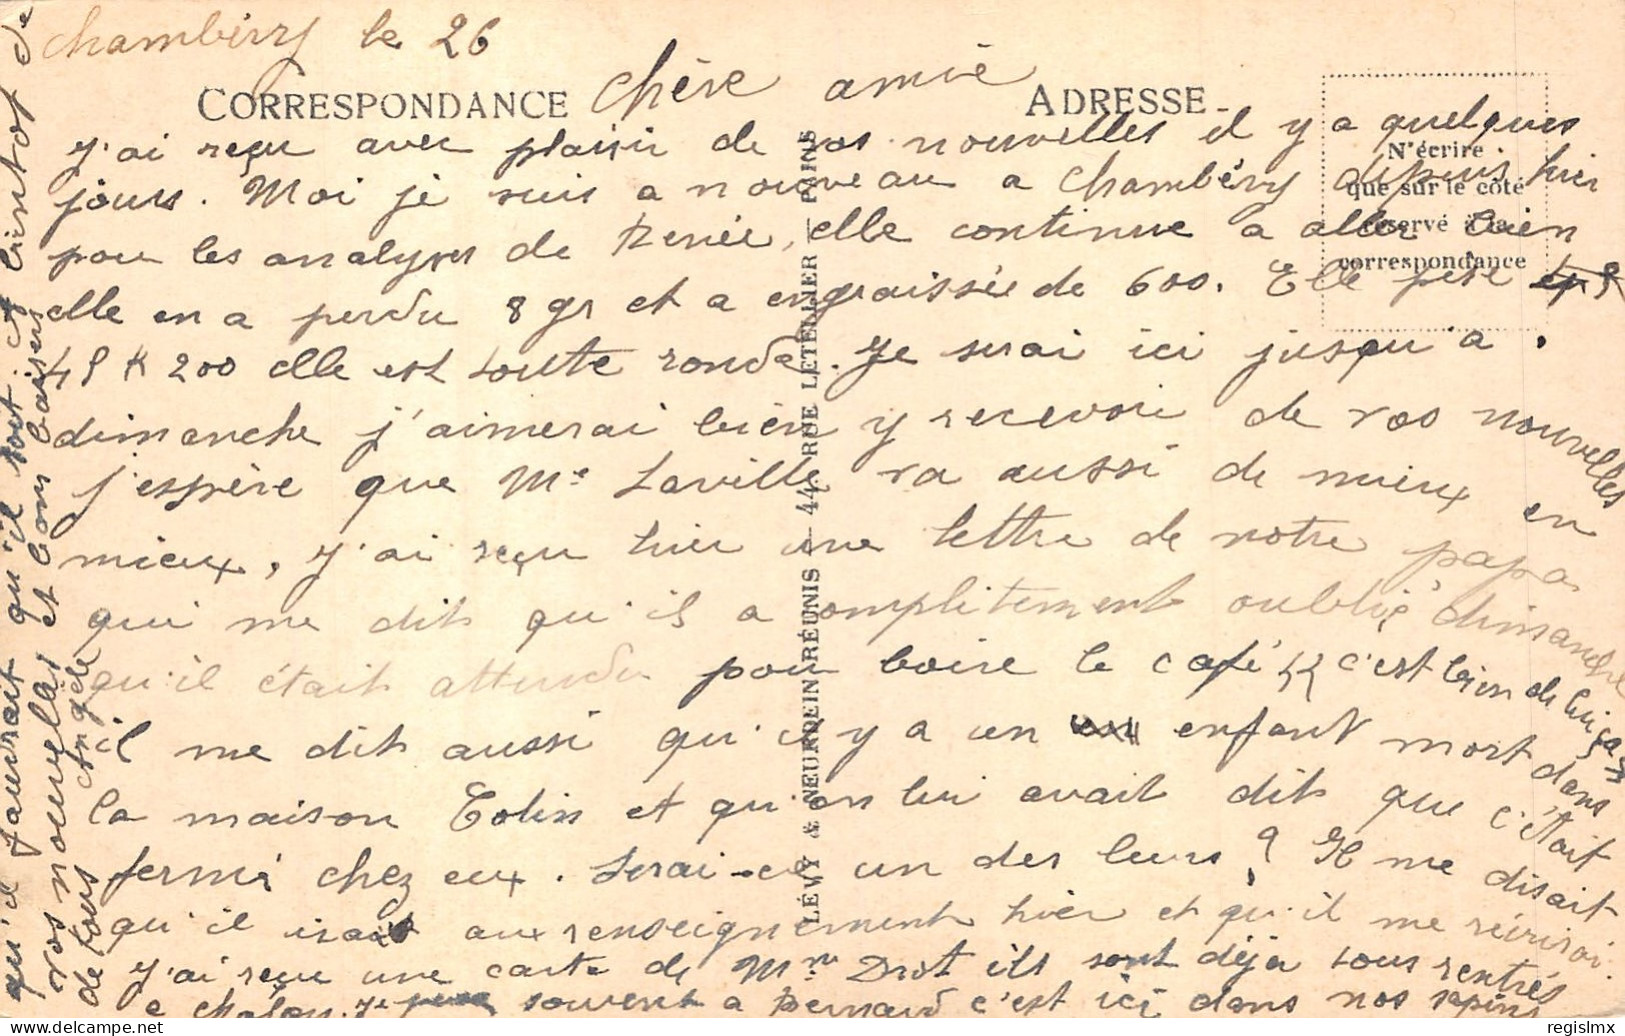 Chambéry le 26
CORRESPONDANCE
Chère amie
ADRESSE
N'écrire
que sur le côté
réservé à la
correspondance
j'ai reçu avec plaisir de vos nouvelles il y a quelques
jours. Moi je suis a nouveau a Chambéry depuis hier
pour les analyses de Renée, elle continue a aller bien
elle en a perdu 8 gr et a engraissée de 600. Elle pèse
48 K 200 elle est toute ronde. Je serai ici jusqu'a
dimanche j'aimerai bien y recevoir de vos nouvelles
j'espère que Me Laville va aussi de mieux en
mieux, j'ai reçu hier une lettre de notre papa
qui me dit qu'il a complitement oublié dimanche
qu'il était attendu pour boire le café !! c'est bien de lui ça
il me dit aussi qu'il y a un enfant mort dans
la maison Colin et qu'on lui avait dit que c'était
fermé chez eux. Serai-ce un des leurs ? Il me disait
qu'il irait aux renseignement hier et qu'il me récrirai.
j'ai reçu une carte de Mme Drot ils sont déja tous rentrés
a Chalon. Je pense souvent a Bernard c'est ici dans nos sapins
qu'il faudrait qu'il soit. A bientot de
vos nouvelles et bons baisers
de tous
Angèle
LÉVY & NEURDEIN RÉUNIS — 44, RUE LETELLIER — PARIS
regislmx